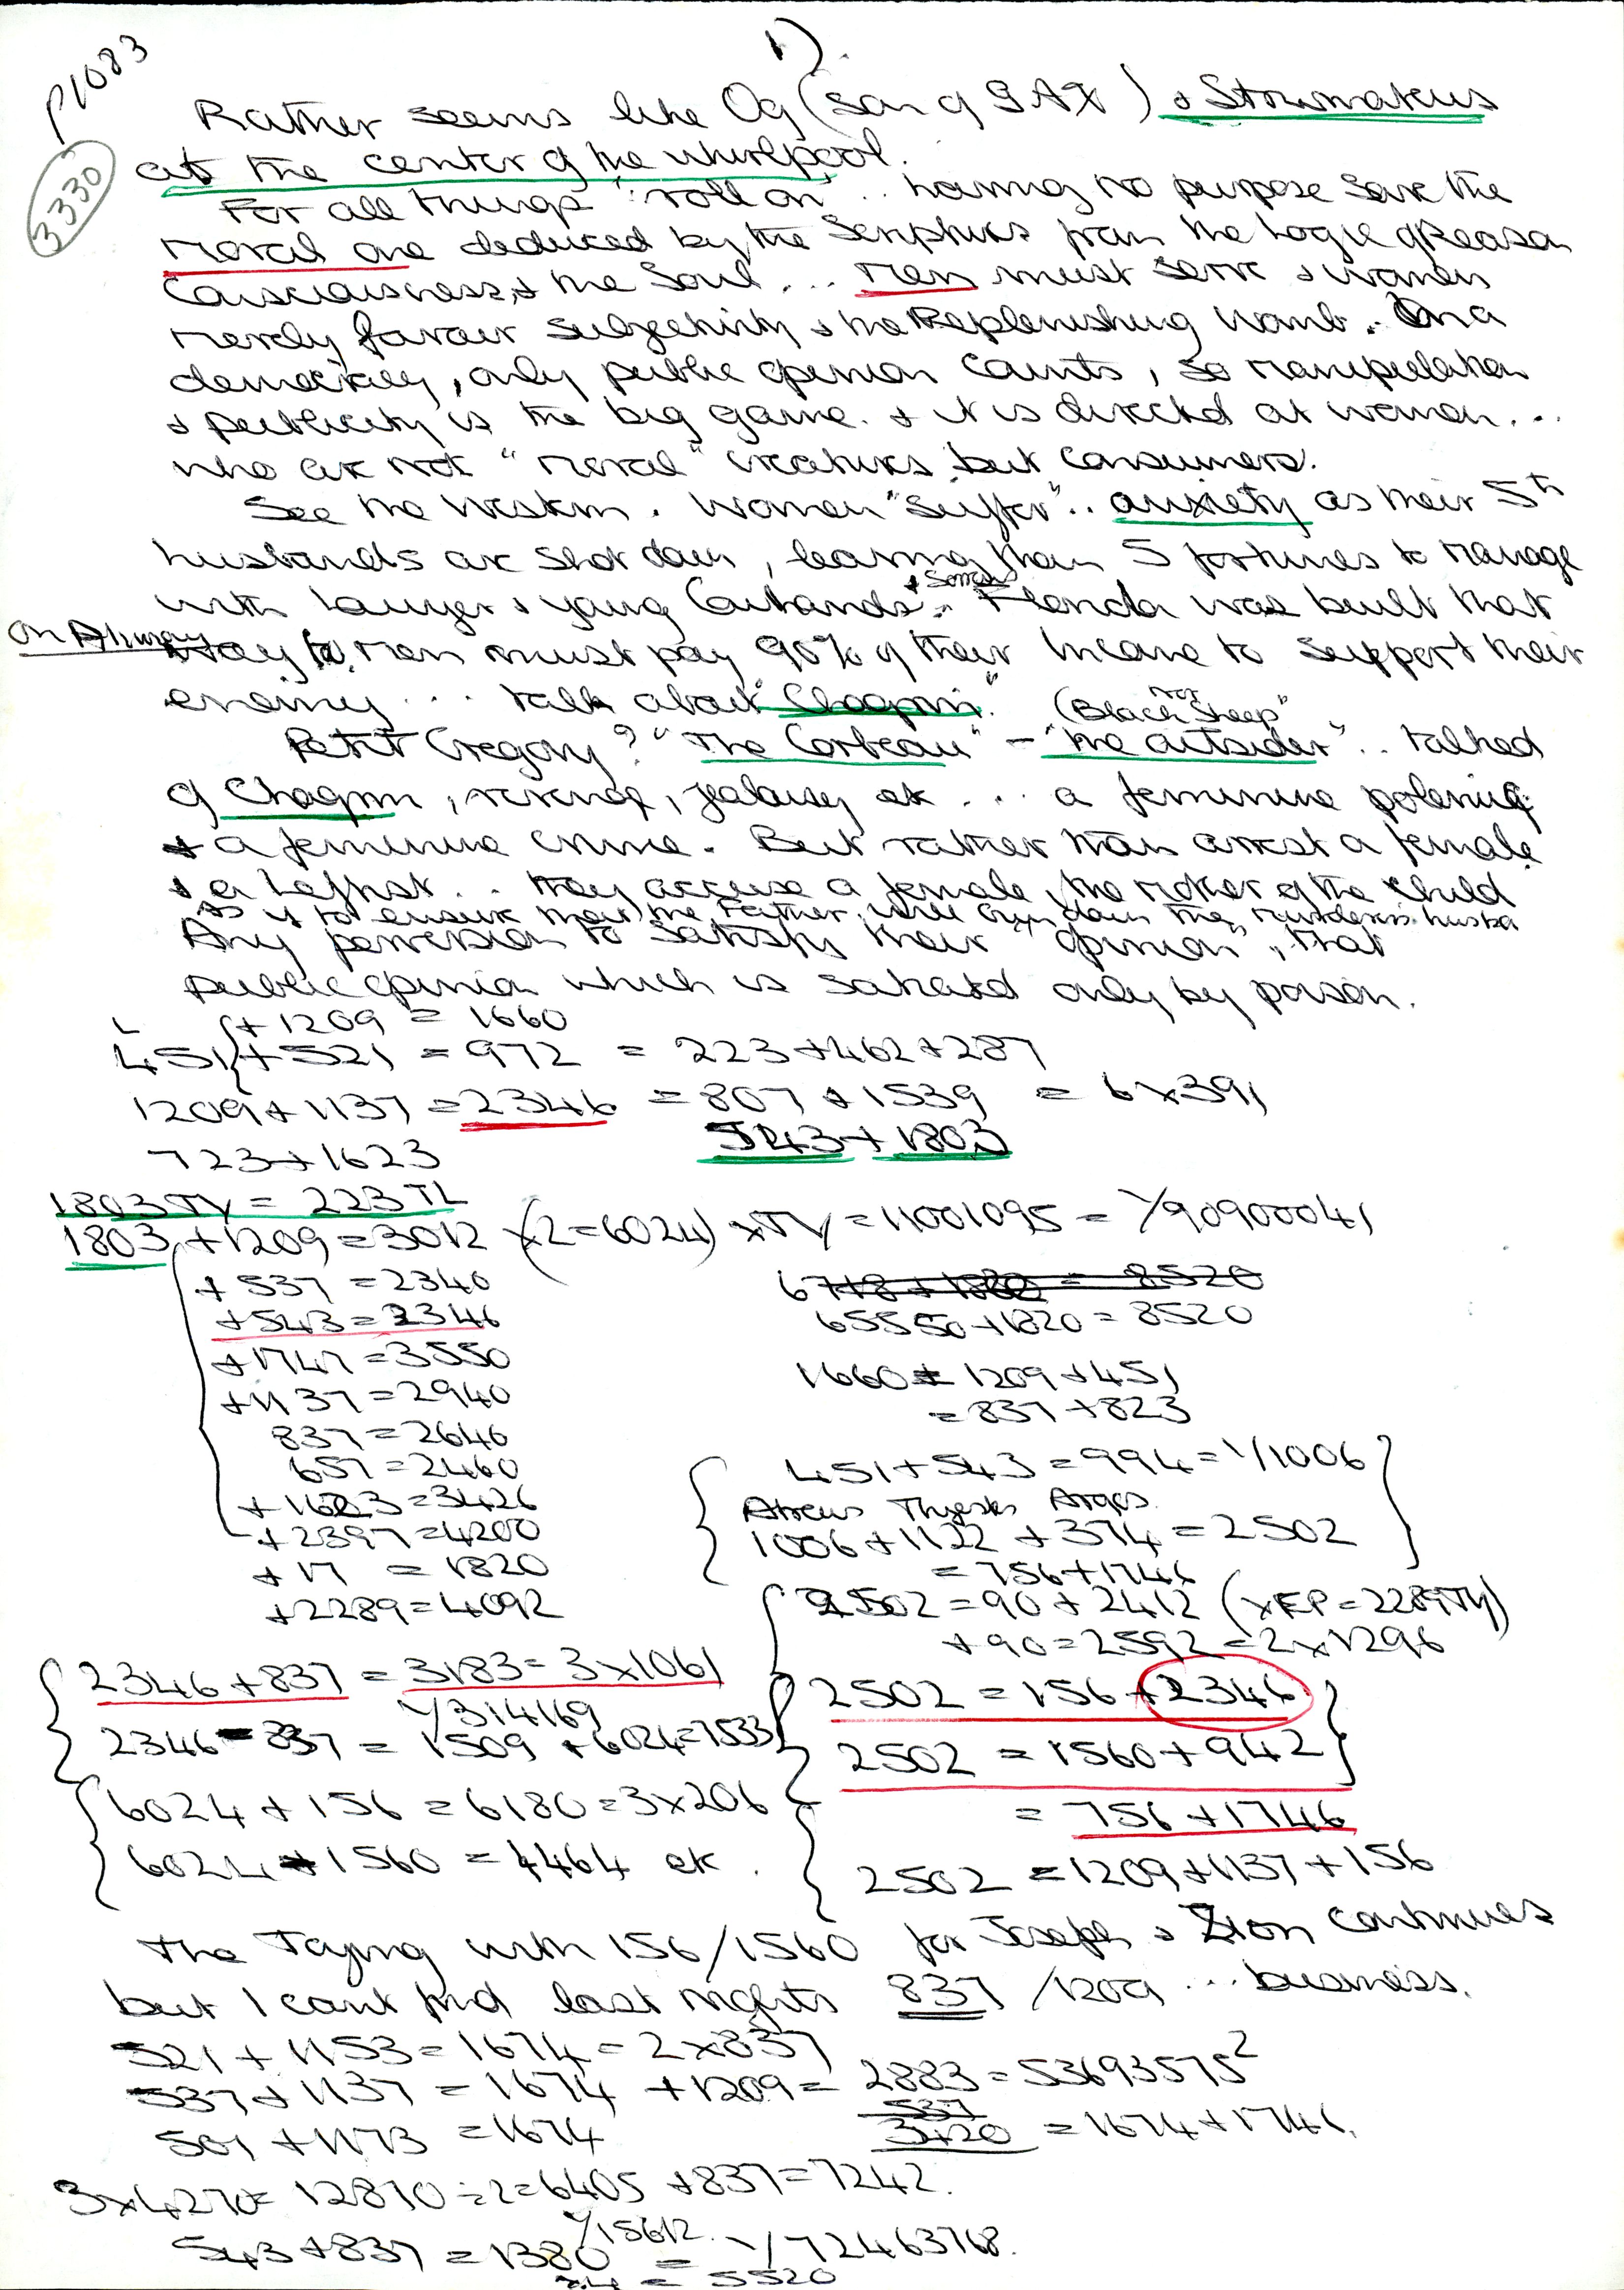 1).
P1083
3330
Rather seems like Og (son of GAX) & Stormateus
at the center of the whirlpool.
For all things "roll on".. having no purpose save the
moral one deduced by the Scriptures from the Logic of Reason
Consciousness, & the Soul... Men must serve & women
merely favour subjectivity & the Replenishing Womb. In a
democracy, only public opinion counts, so manipulation
& publicity is the big game. & it is directed at women...
who are not "moral" creatures but consumers.
See the Western. Women "suffer".. anxiety as their 5th
husbands are shot down, leaving them 5 fortunes to manage
with Lawyers & young Cowhands & sorrows.. Florida was built that
way
on Alimony
Men must pay 90% of their income to support their
enemy... talk about "Chagrin".
(Not "Black Sheep"
Petit Gregory? "The Corbeau" - "the outsider".. talked
of Chagrin, revenge, jealousy etc... a feminine polemic
& a feminine crime. But rather than arrest a female
& a Leftist.. they accuse a female, the mother of the child
As if to ensure that the Father, will gun down the murderess husba
Any perversion to satisfy their "opinion", that
public opinion which is satiated only by poison.
+ 1209 = 1660
451 + 521 = 972 = 223 + 462 + 287
1209 + 1137 = 2346 = 807 + 1539 = 6 x 391
543 + 1803
723 + 1623
1803 TY = 223 TL
1803 + 1209 = 3012 (x2 = 6024) x TY = 11001095 = 1/90900041
+ 537 = 2340
+ 543 = 2346
+ 1747 = 3550
+ 1137 = 2940
837 = 2640
657 = 2460
+ 1623 = 3426
+ 2397 = 4200
+ 17 = 1820
+ 2289 = 4092
65550 + 1820 = 8520
1660 = 1209 + 451
= 837 + 823
451 + 543 = 994 = 1/1006
Atreus Thyestes Argos
1006 + 1122 + 374 = 2502
= 756 + 1746
2502 = 90 + 2412 (x EP = 2289 TY)
+ 90 = 2592 = 2 x 1296
2502 = 156 + 2346
2502 = 1560 + 942
= 756 + 1746
2502 = 1209 + 1137 + 156
2346 + 837 = 3183 = 3 x 1061
1/314169
2346 - 837 = 1509 + 6024 = 7533
6024 + 156 = 6180 = 3 x 206
6024 - 1560 = 4464 etc.
The Toying with 156/1560 for Joseph & Zion continues
but I cant find last nights 837 / 1209... business.
521 + 1153 = 1674 = 2 x 837
537 + 1137 = 1674 + 1209 = 2883 = 53693575²
537
501 + 1173 = 1674
3420 = 1674 + 1746
3 x 4270 = 12810 ÷ 2 = 6405 + 837 = 7242.
1/15612.
543 + 837 = 1380 = 1/72463768.
x4 = 5520